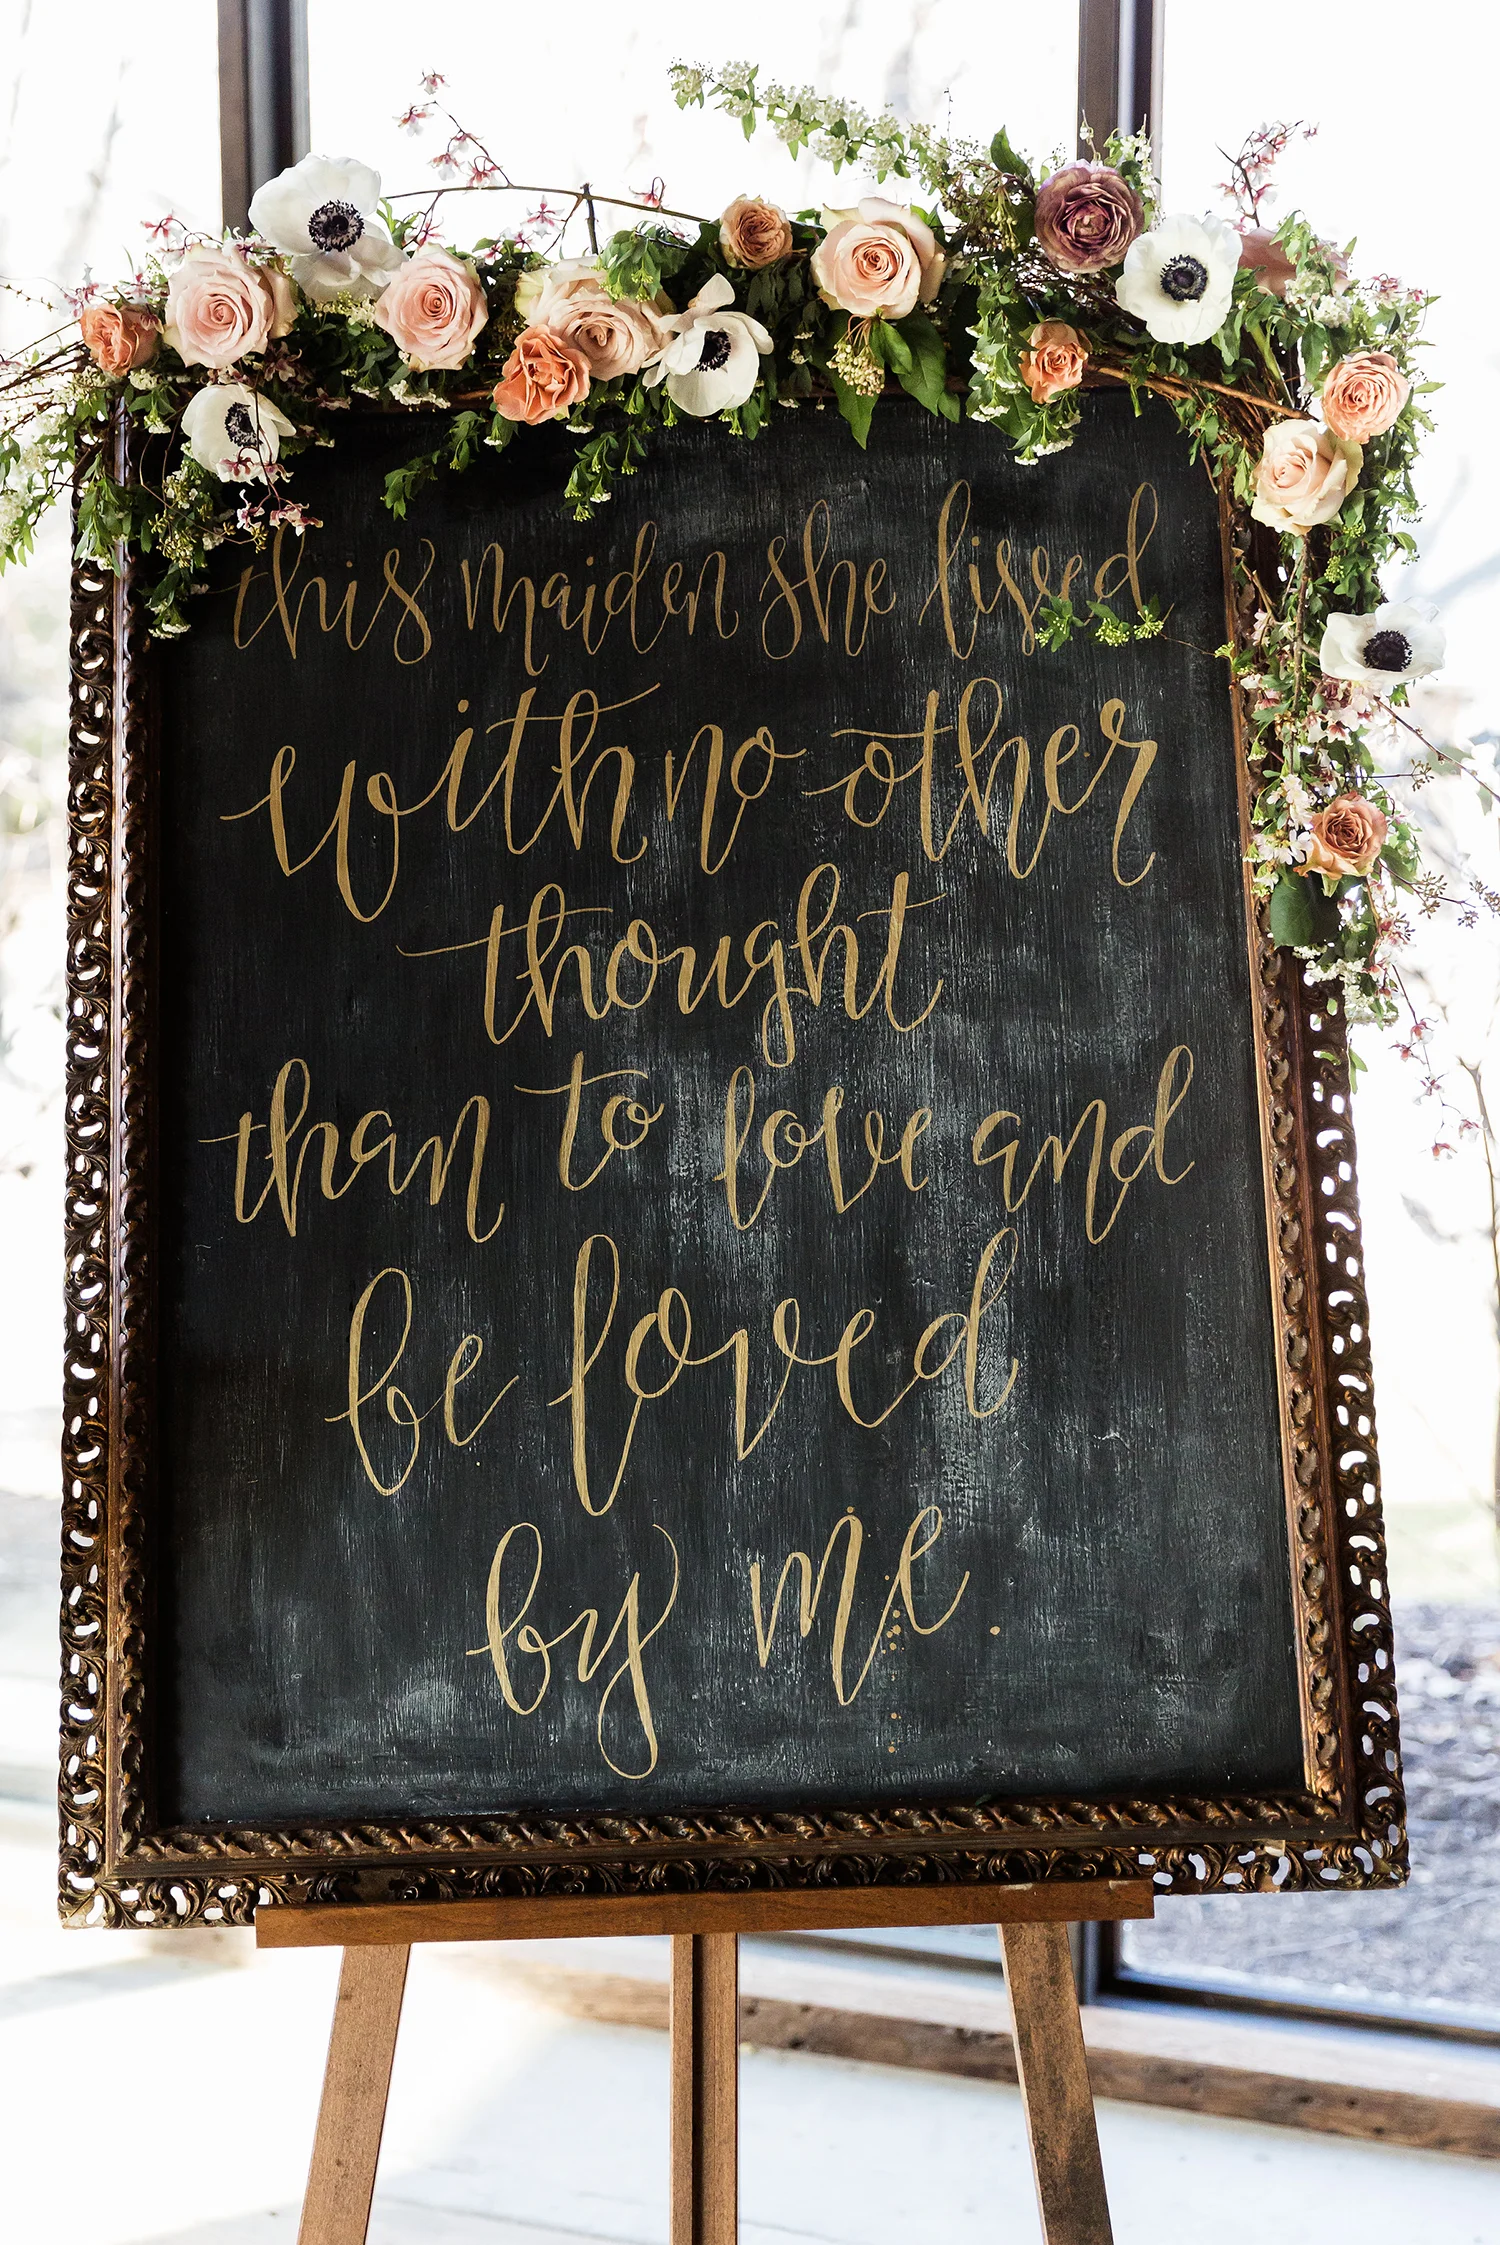 this maiden she lived
with no other
thought
than to love and
be loved
by me.